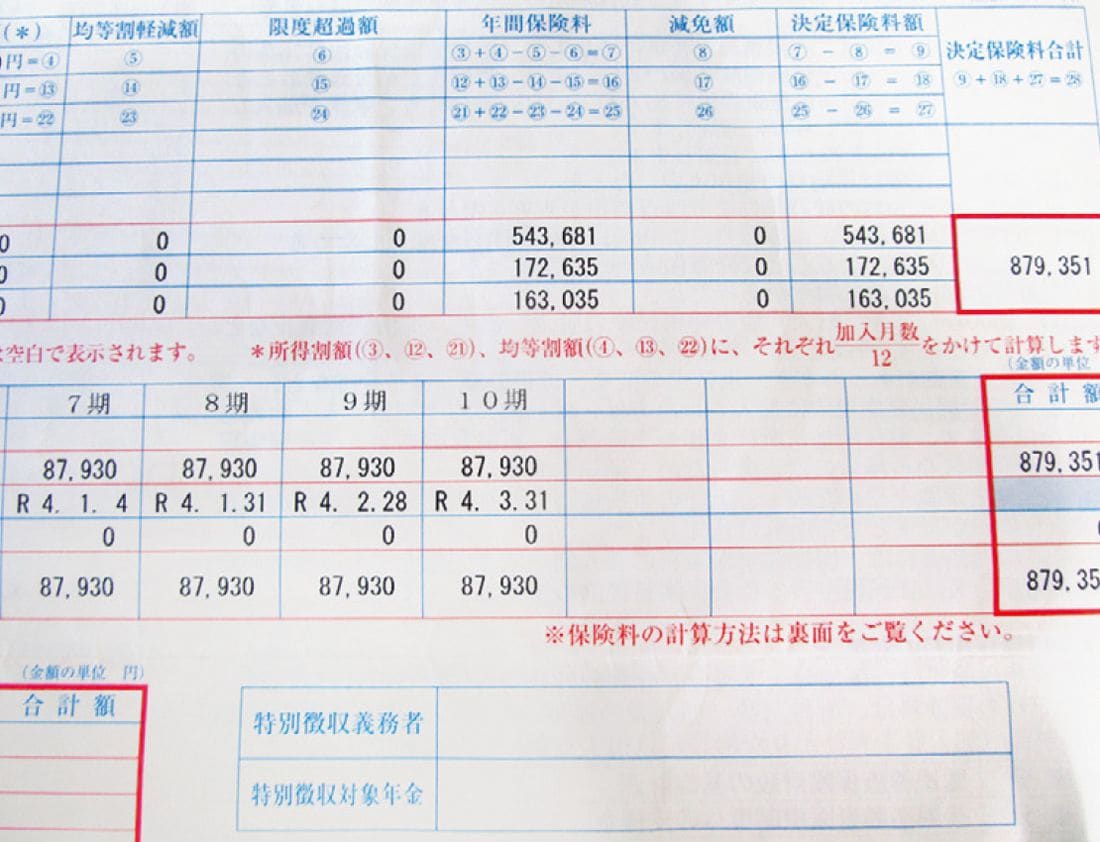 (*) 均等割軽減額 限度超過額 年間保険料 減免額 決定保険料額 決定保険料合計
円=④ ⑤ ⑥ ③+④-⑤-⑥=⑦ ⑧ ⑦ - ⑧ = ⑨ ⑨+⑱+㉗=㉘
円=⑬ ⑭ ⑮ ⑫+⑬-⑭-⑮=⑯ ⑰ ⑯ - ⑰ = ⑱
円=㉒ ㉓ ㉔ ㉑+㉒-㉓-㉔=㉕ ㉖ ㉕ - ㉖ = ㉗
0 0 0 543,681 0 543,681
0 0 0 172,635 0 172,635 879,351
0 0 0 163,035 0 163,035
は空白で表示されます。 *所得割額(③、⑫、㉑)、均等割額(④、⑬、㉒)に、それぞれ加入月数/12をかけて計算します
(金額の単位
7期 8期 9期 10期 合計額
87,930 87,930 87,930 87,930 879,351
R 4. 1. 4 R 4. 1.31 R 4. 2.28 R 4. 3.31
0 0 0 0
87,930 87,930 87,930 87,930 879,35
※保険料の計算方法は裏面をご覧ください。
(金額の単位 円)
合計額
特別徴収義務者
特別徴収対象年金